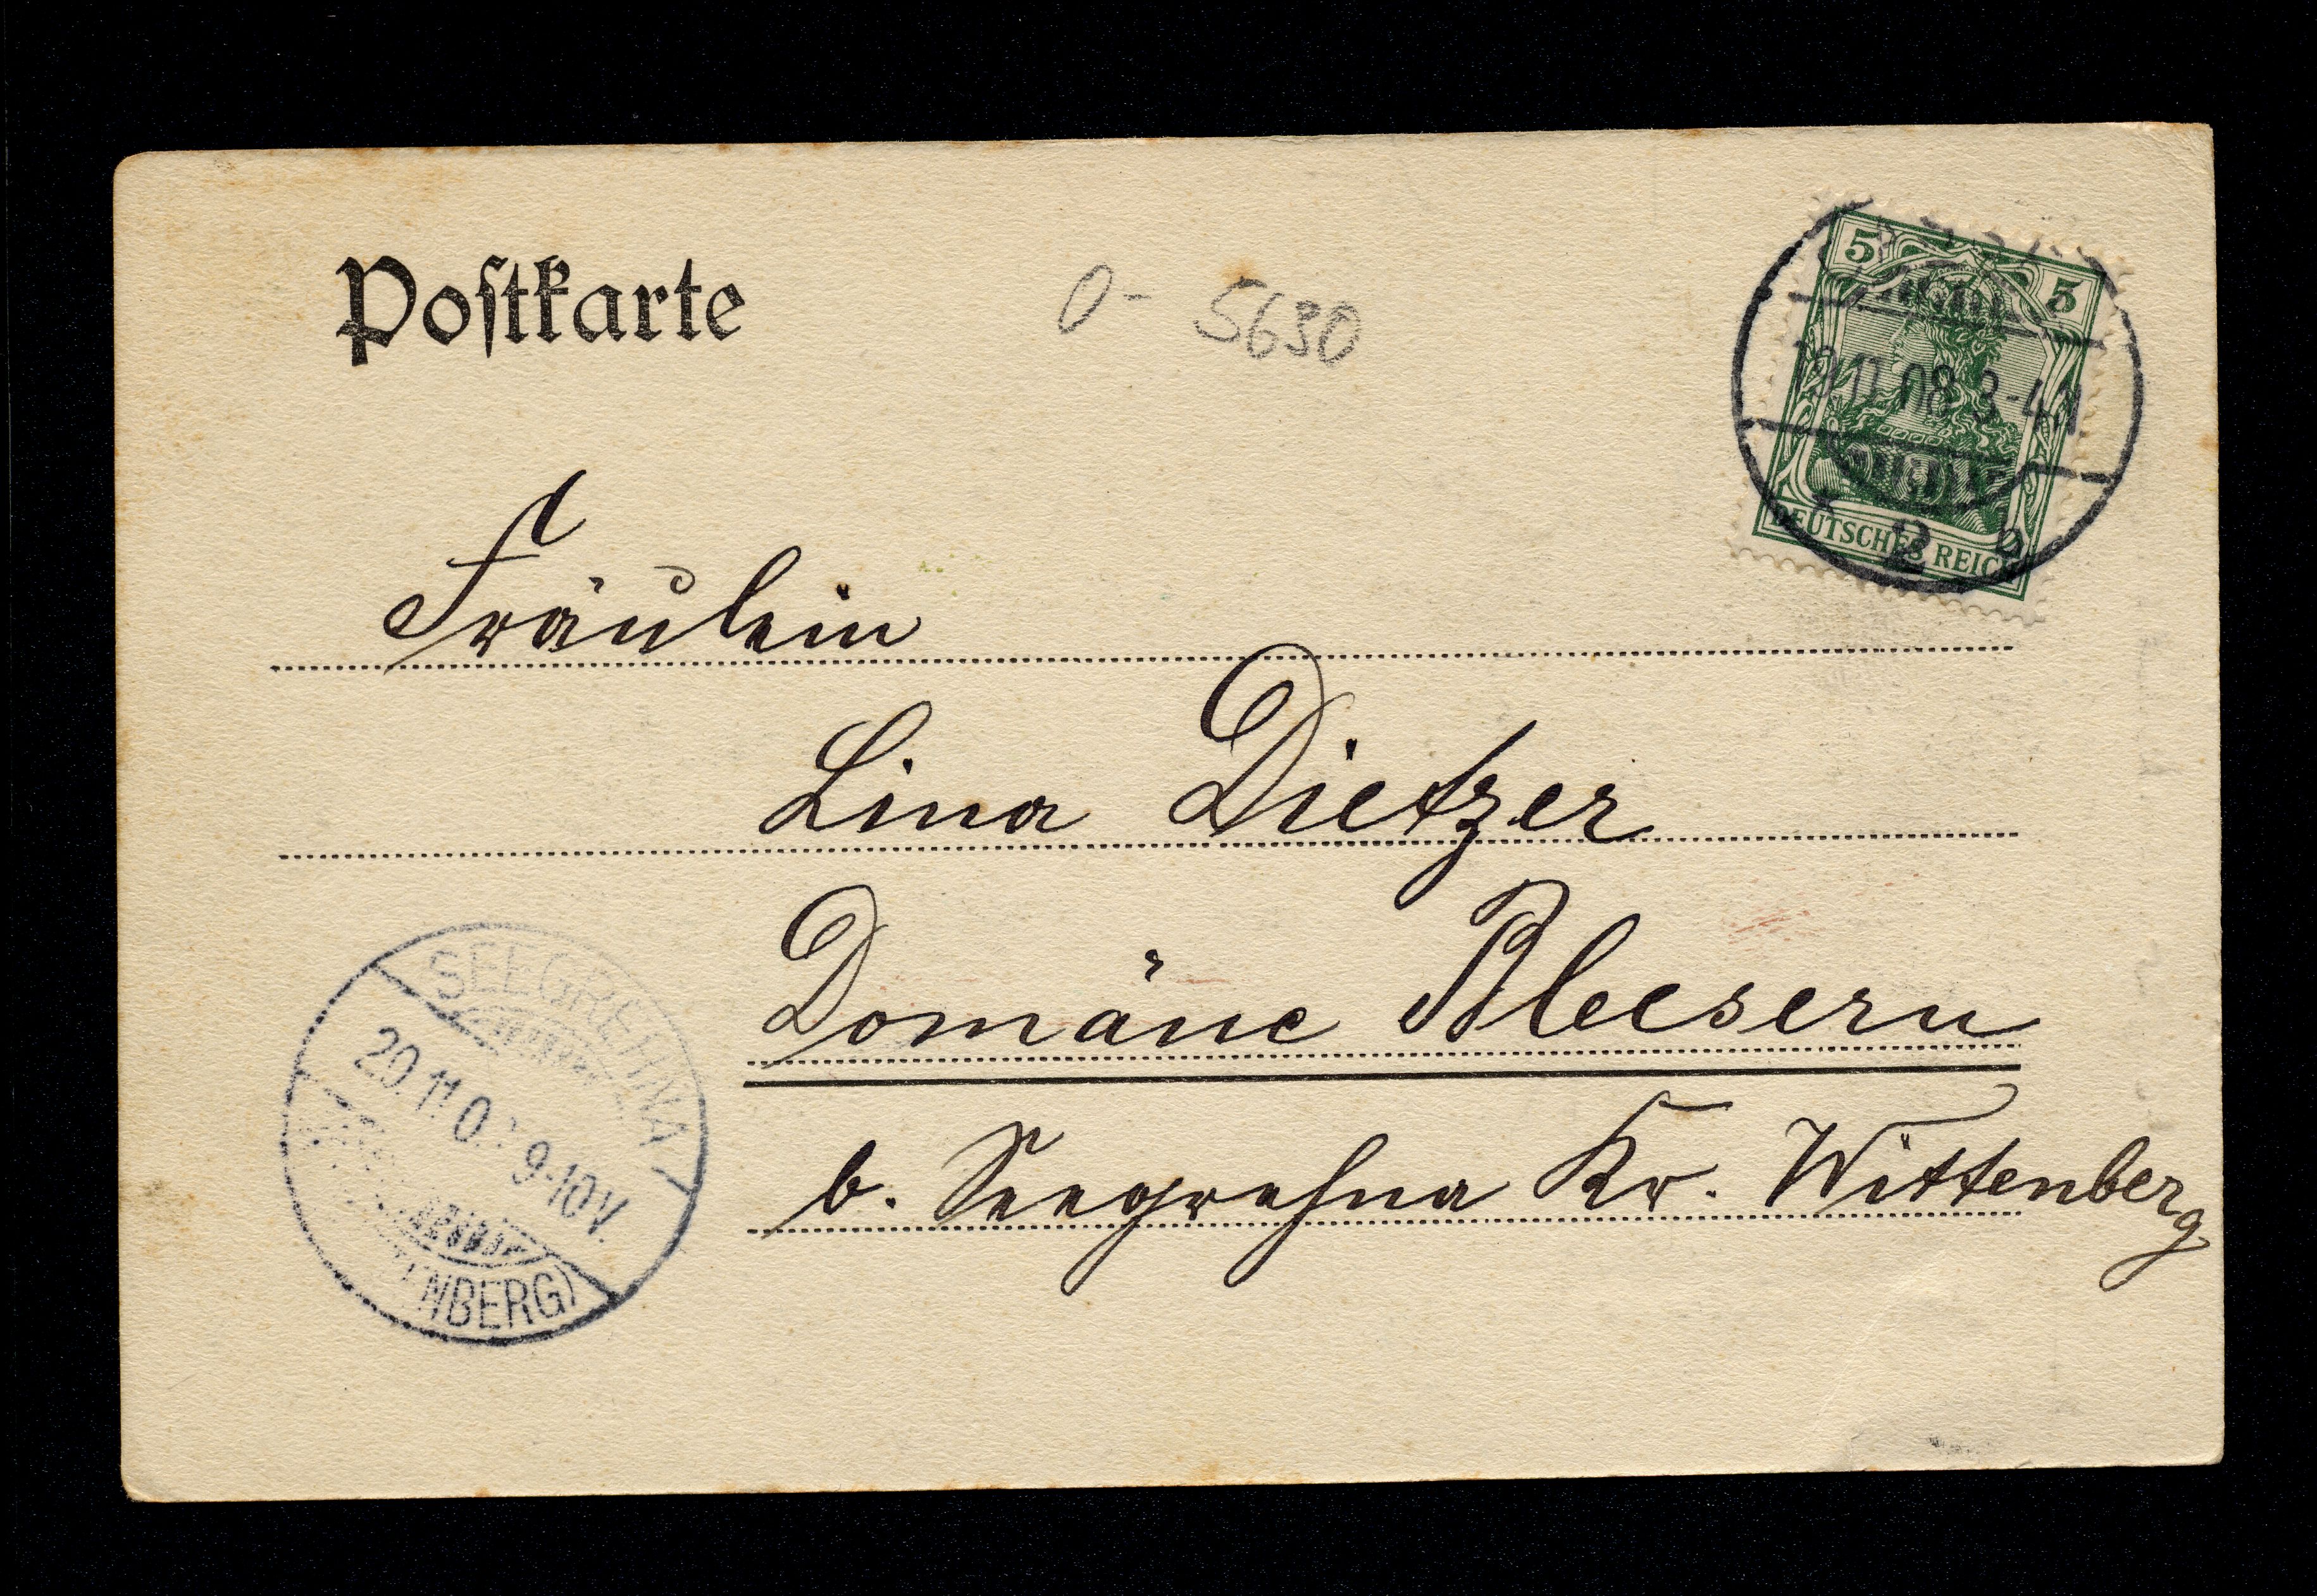 Postkarte
O- 5630
5 5
11.08 3-4N
DEUTSCHES REICH
Fräulein
Lina Dietzer
Domäne Bleesern
b. Seegrehna Kr. Wittenberg
SEEGREHNA
20.11.0 9-10V.
NBERG)